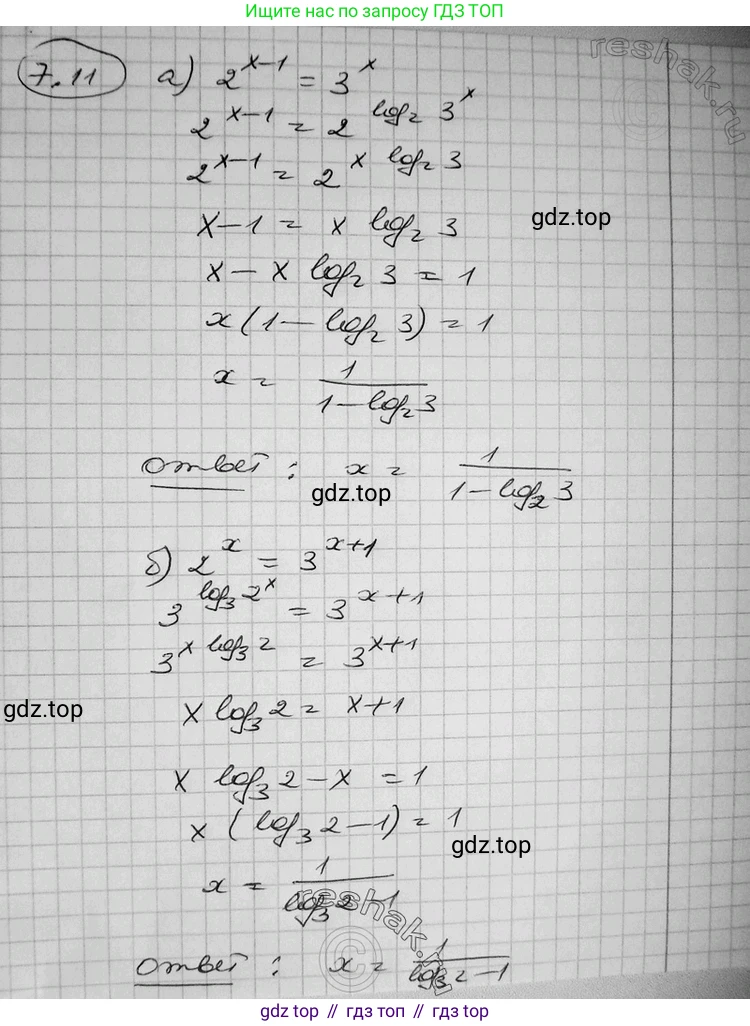 Ищите нас по запросу ГДЗ ТОП
reshak.ru
7.11 а) 2^(x-1) = 3^x
2^(x-1) = 2^(log₂ 3^x)
2^(x-1) = 2^(x log₂ 3)
x-1 = x log₂ 3
gdz.top
x - x log₂ 3 = 1
x(1 - log₂ 3) = 1
x = 1/(1 - log₂ 3)
ответ : x = 1/(1 - log₂ 3)
gdz.top
б) 2^x = 3^(x+1)
3^(log₃ 2^x) = 3^(x+1)
3^(x log₃ 2) = 3^(x+1)
gdz.top
x log₃ 2 = x+1
x log₃ 2 - x = 1
x (log₃ 2 - 1) = 1
gdz.top
x = 1/(log₃ 2 - 1)
reshak.ru
©
ответ : x = 1/(log₃ 2 - 1)
gdz top // гдз топ // gdz top // гдз топ